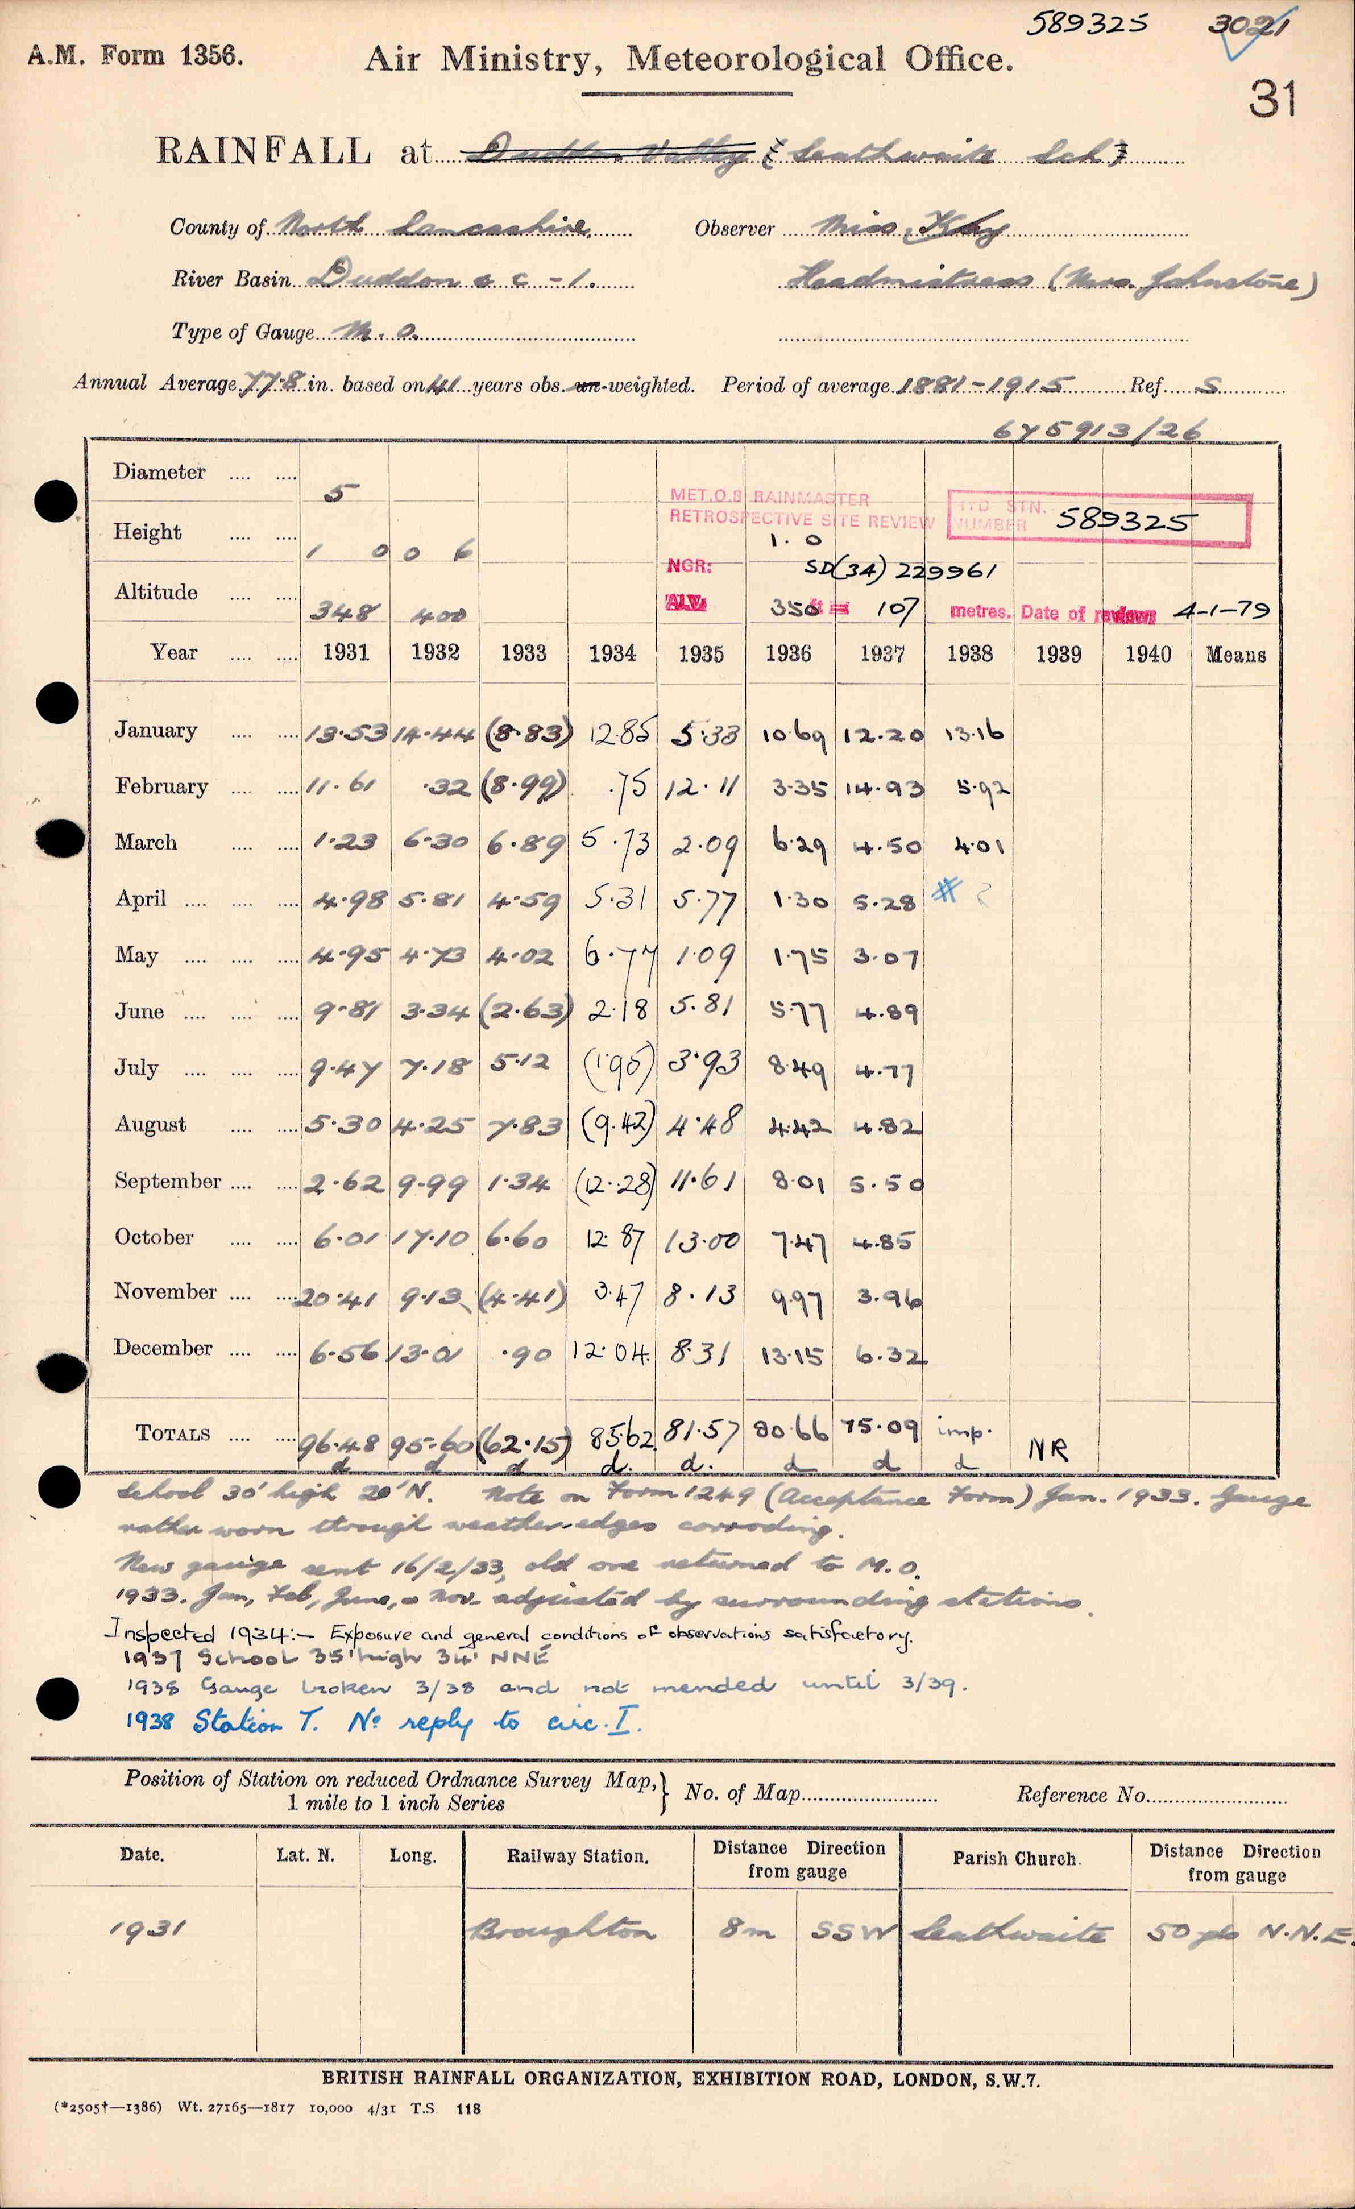 589325 3021
A.M. Form 1356. Air Ministry, Meteorological Office.
31
RAINFALL at Duddon Valley (Seathwaite Sch)
County of North Lancashire. Observer Miss Kay
River Basin Duddon & c - 1. Headmistress (Mrs. Johnstone)
Type of Gauge M.O.
Annual Average 77.8 in. based on 41 years obs. un-weighted. Period of average 1881-1915 Ref. S
675913/26
Diameter .... .... 5
MET.O.8 RAINMASTER HYD STN.
RETROSPECTIVE SITE REVIEW NUMBER 589325
Height .... .... 1 0 0 6 1.0
NGR: SD(34) 229961
Altitude .... .... 348 400 350 ft = 107 metres. Date of review 4-1-79
Year .... .... 1931 1932 1933 1934 1935 1936 1937 1938 1939 1940 Means
January .... .... 13.53 14.44 (8.83) 12.85 5.33 10.69 12.20 13.16
February .... .... 11.61 .32 (8.99) .75 12.11 3.35 14.93 5.92
March .... .... 1.23 6.30 6.89 5.73 2.09 6.29 4.50 4.01
April .... .... .... 4.98 5.81 4.59 5.31 5.77 1.30 5.28 # ?
May .... .... .... 4.95 4.73 4.02 6.77 1.09 1.75 3.07
June .... .... .... 9.81 3.34 (2.63) 2.18 5.81 5.77 4.89
July .... .... .... 9.47 7.18 5.12 (1.95) 3.93 8.49 4.77
August .... .... 5.30 4.25 7.83 (9.42) 4.48 4.42 4.82
September .... .... 2.62 9.99 1.34 (12.28) 11.61 8.01 5.50
October .... .... 6.01 17.10 6.60 12.87 13.00 7.47 4.85
November .... .... 20.41 9.13 (4.41) 3.47 8.13 9.97 3.96
December .... .... 6.56 13.01 .90 12.04 8.31 13.15 6.32
TOTALS .... .... 96.48 95.60 (62.15) 85.62 81.57 80.66 75.09 imp. NR
d d d d. d. d d d
School 30' high 20' N. Note on Form 1249 (Acceptance Form) Jan. 1933. Gauge
rather worn through weather edges corroding.
New gauge sent 16/2/33, old one returned to M.O.
1933. Jan, Feb, June, & Nov. adjusted by surrounding stations.
Inspected 1934:- Exposure and general conditions of observations satisfactory.
1937 School 35' high 34' NNE
1938 Gauge broken 3/38 and not mended until 3/39.
1938 Station T. No reply to circ. I.
Position of Station on reduced Ordnance Survey Map,} No. of Map Reference No.
1 mile to 1 inch Series
Date. Lat. N. Long. Railway Station. Distance Direction from gauge Parish Church. Distance Direction from gauge
1931 Broughton 8m SSW Seathwaite 50 yds N.N.E.
BRITISH RAINFALL ORGANIZATION, EXHIBITION ROAD, LONDON, S.W.7.
(*2505†—1386) Wt. 27165—1817 10,000 4/31 T.S 118